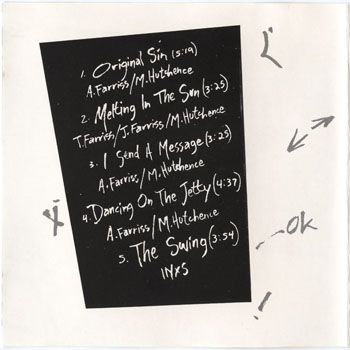 1. Original Sin (5:19)
A.Farriss/M.Hutchence
2. Melting In The Sun (3:25)
T.Farriss/J.Farriss/M.Hutchence
3. I Send A Message (3:23)
A.Farriss/M.Hutchence
4. Dancing On The Jetty (4:37)
A.Farriss/M.Hutchence
5. The Swing (3:54)
INXS
OK